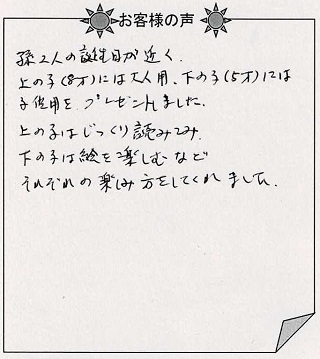 お客様の声
孫2人の誕生日が近く、
上の子(8才)には大人用、下の子(5才)には
子供用を プレゼントしました。
上の子はじっくり読みこみ、
下の子は絵を楽しむなど
それぞれの楽しみ方をしてくれました。